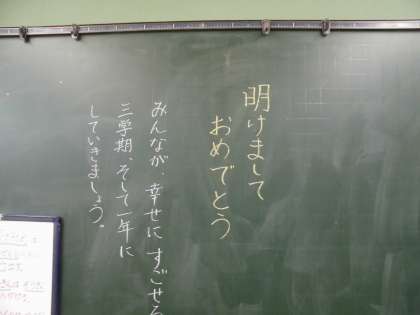 明けまして
おめでとう
みんなが、幸せにすごせる
三学期、そして一年に
していきましょう。